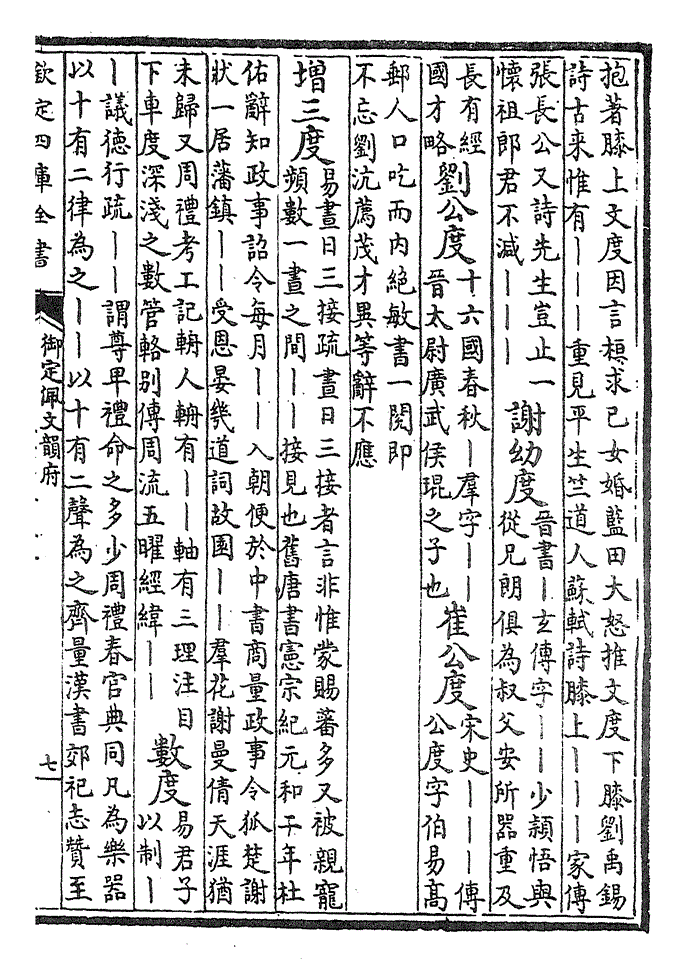 抱著膝上文度因言桓求己女婚藍田大怒推文度下膝劉禹錫
詩古来惟有丨丨丨重見平生竺道人蘇軾詩膝上丨丨丨家傳
張長公又詩先生豈止一
懷祖郎君不減丨丨丨
謝幼度
晉書丨玄傳字丨丨少頴悟與
從兄朗俱為叔父安所器重及
長有經
國才略
劉公度
十六國春秋丨羣字丨丨
晉太尉廣武侯琨之子也
崔公度
宋史丨丨丨傳
公度字伯易高
郵人口吃而内絕敏書一閱即
不忘劉沆薦茂才異等辭不應
增三度
易晝日三接疏晝日三接者言非惟蒙賜蕃多又被親寵
頻數一晝之間丨丨接見也舊唐書憲宗紀元和干年杜
佑辭知政事詔令每月丨丨入朝便於中書商量政事令狐楚謝
狀一居藩鎮丨丨受恩晏幾道詞故園丨丨羣花謝曼倩天涯猶
未歸又周禮考工記輈人輈有丨丨軸有三理注目
下車度深淺之數管輅别傳周流五曜經緯丨丨
數度
易君子
以制丨
丨議德行疏丨丨謂尊卑禮命之多少周禮春官典同凡為樂器
以十有二律為之丨丨以十有二聲為之齊量漢書郊祀志贊至
欽定四庫全書
御定佩文韻府
七